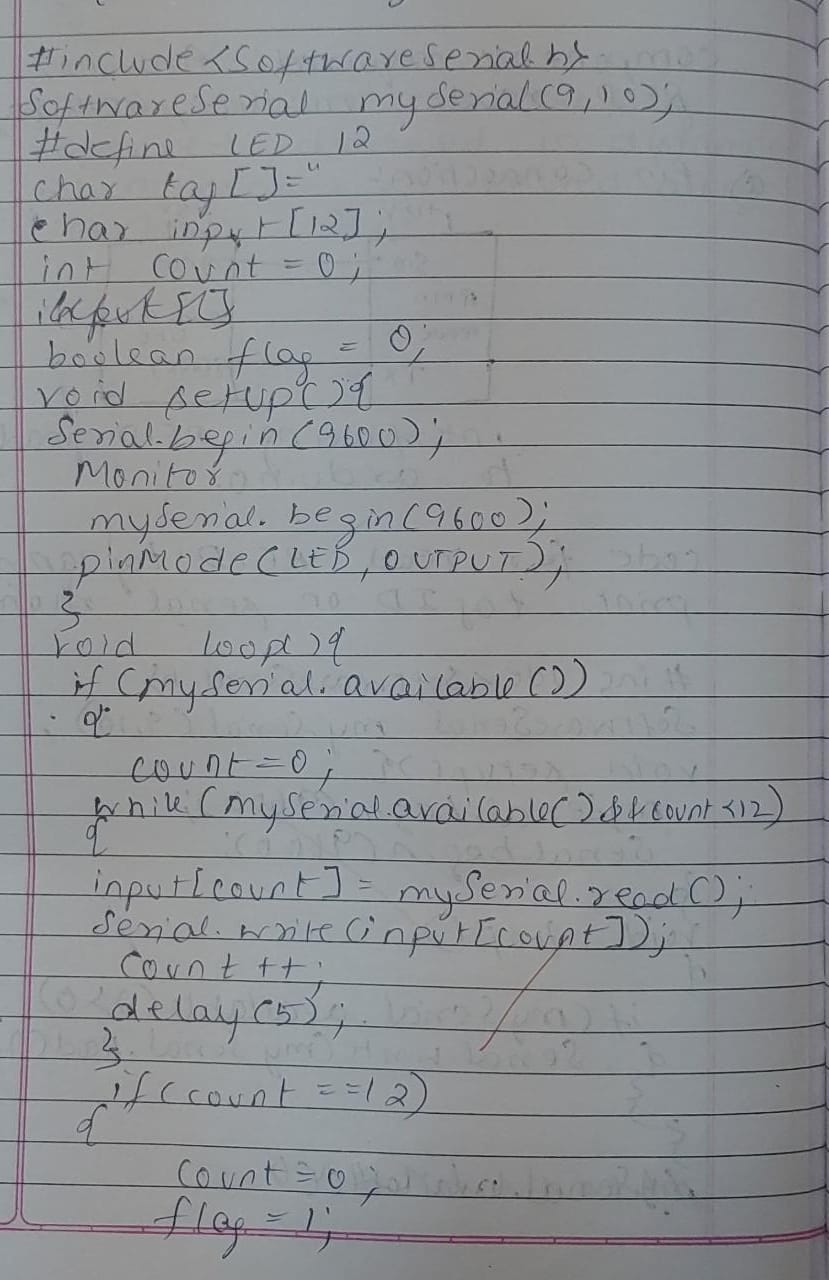 #include<SoftwareSerial.h>
SoftwareSerial mySerial(9,10);
#define LED 12
char tag[]="
char input[12];
int count = 0;
boolean flag = 0;
void setup(){
Serial.begin(9600);
Monitor
mySerial.begin(9600);
pinMode(LED, OUTPUT);
}
void loop(){
if (mySerial.available())
{
count=0;
while(mySerial.available() && count<12)
{
input[count] = mySerial.read();
Serial.write(input[count]);
count++;
delay(5);
}
if(count==12)
{
count=0;
flag=1;